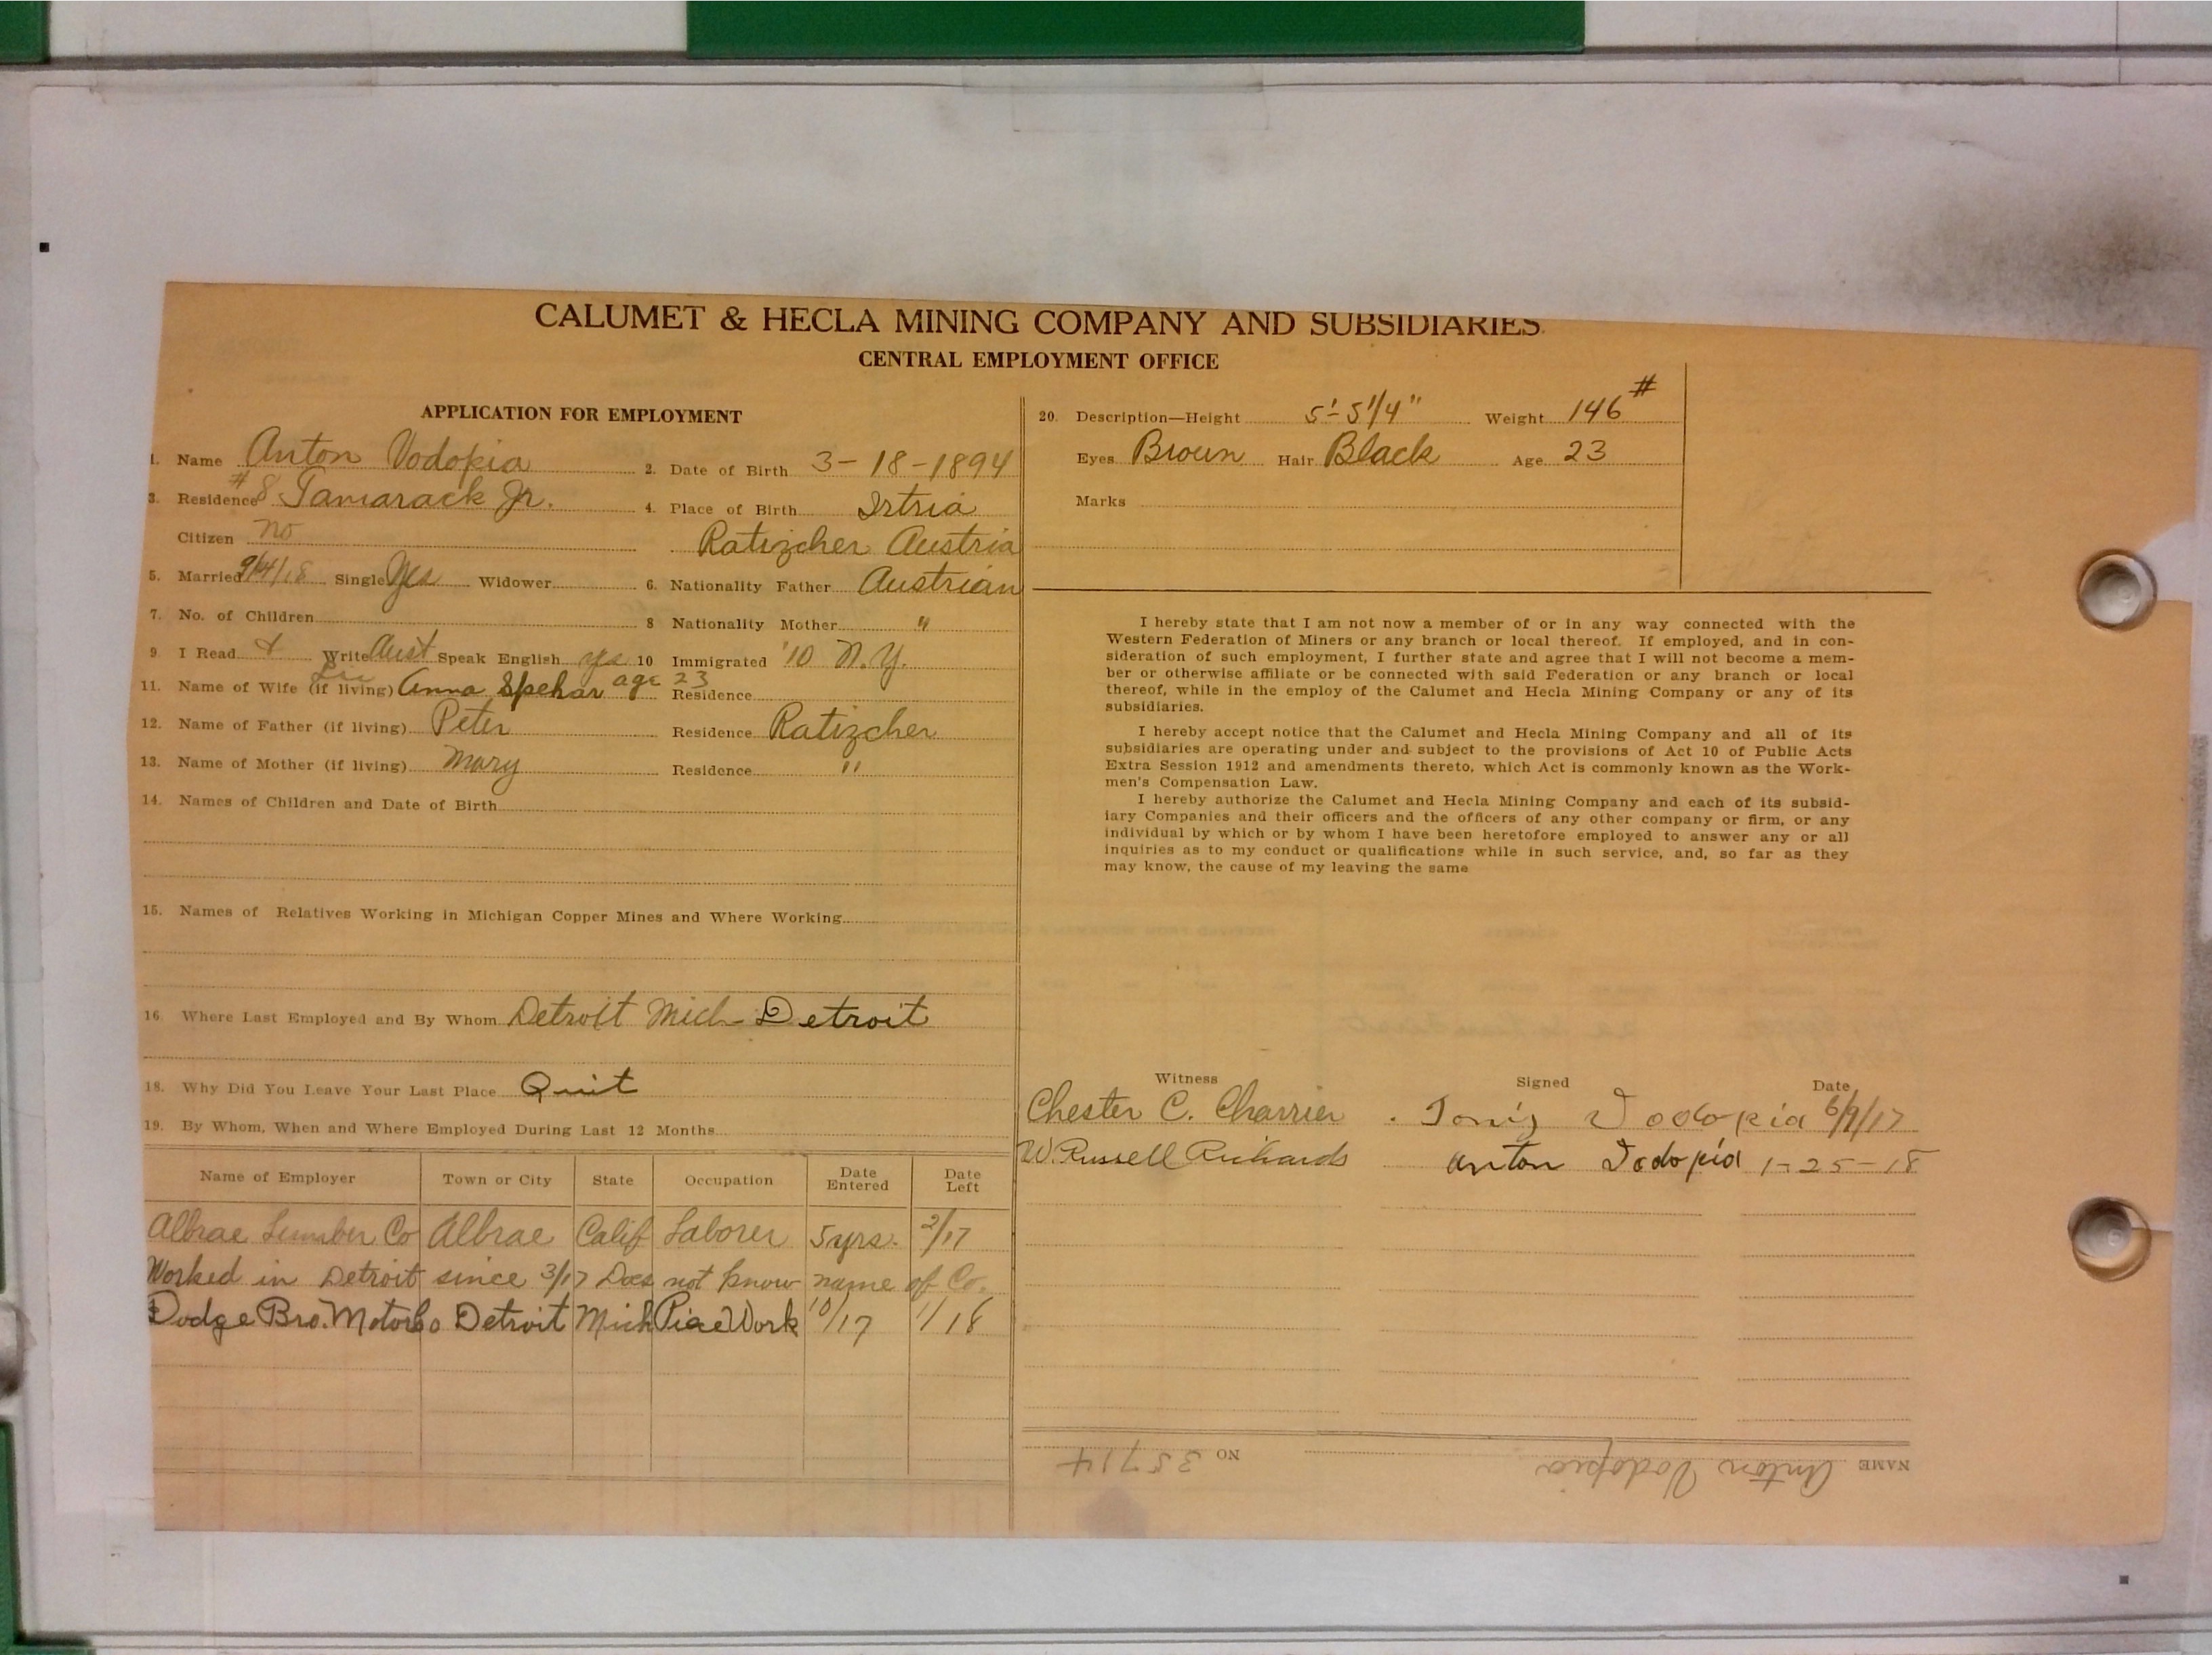 CALUMET & HECLA MINING COMPANY AND SUBSIDIARIES
CENTRAL EMPLOYMENT OFFICE
APPLICATION FOR EMPLOYMENT
1. Name Anton Vodopia 2. Date of Birth 3-18-1894
3. Residence #8 Tamarack Jr. 4. Place of Birth Istria
Citizen no Ratizcher Austria
5. Married 9/4/18 Single Yes Widower 6. Nationality Father Austrian
7. No. of Children 8 Nationality Mother "
9 I Read & Write Aust Speak English yes 10 Immigrated '10 N.Y.
11. Name of Wife (if living) Anna Spehar age 23 Residence
12. Name of Father (if living) Peter Residence Ratizcher
13. Name of Mother (if living) Mary Residence "
14. Names of Children and Date of Birth
15. Names of Relatives Working in Michigan Copper Mines and Where Working
16. Where Last Employed and By Whom Detroit Mich - Detroit
18. Why Did You Leave Your Last Place Quit
19. By Whom, When and Where Employed During Last 12 Months
Name of Employer Town or City State Occupation Date Entered Date Left
Albrae Lumber Co Albrae Calif Laborer 5 yrs. 2/17
Worked in Detroit since 3/17 Does not know name of Co.
Dodge Bro. Motor Co Detroit Mich Piece Work 10/17 1/18
20. Description—Height 5'-5 1/4" Weight 146#
Eyes Brown Hair Black Age 23
Marks
I hereby state that I am not now a member of or in any way connected with the
Western Federation of Miners or any branch or local thereof. If employed, and in con-
sideration of such employment, I further state and agree that I will not become a mem-
ber or otherwise affiliate or be connected with said Federation or any branch or local
thereof, while in the employ of the Calumet and Hecla Mining Company or any of its
subsidiaries.
I hereby accept notice that the Calumet and Hecla Mining Company and all of its
subsidiaries are operating under and subject to the provisions of Act 10 of Public Acts
Extra Session 1912 and amendments thereto, which Act is commonly known as the Work-
men's Compensation Law.
I hereby authorize the Calumet and Hecla Mining Company and each of its subsid-
iary Companies and their officers and the officers of any other company or firm, or any
individual by which or by whom I have been heretofore employed to answer any or all
inquiries as to my conduct or qualifications while in such service, and, so far as they
may know, the cause of my leaving the same
Witness Signed Date
Chester C. Charrier Tony Vodopia 6/9/17
W. Russell Richards Anton Vodopia 1-25-18
NAME Anton Vodopia NO 35714